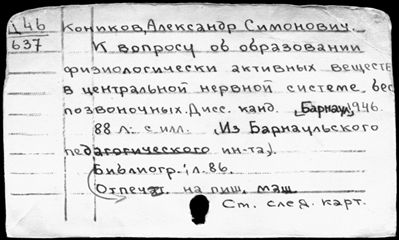 146 Коников, Александр Симонович.
637 К вопросу об образовании
физиологически активных веществ
в центральной нервной системе бес
позвоночных. Дисс. канд. [Барнаул] 1946.
88 л. с илл. (Из Барнаульского
педагогического ин-та).
Библиогр.: л. 86.
Отпечат. на пиш. маш
См. след. карт.